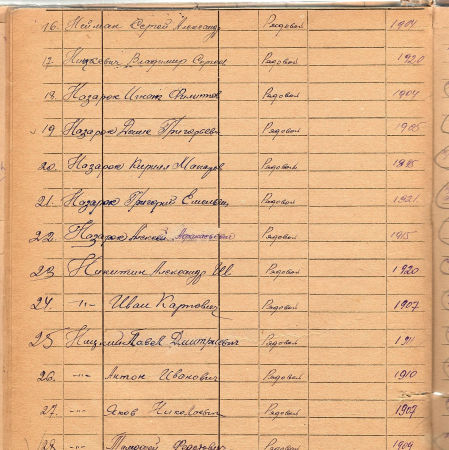 16. Нейман Сергей Александр Рядовой 1901
17. Ницкевич Владимир Сергеев Рядовой 1920
18. Назарок Игнат Филиппов Рядовой 1904
19 Назарок Григорьев Рядовой 1905
20. Назарок Кирилл Рядовой
21. Назарок Григорий Емельян Рядовой 1921
22. Назарок Алексей Рядовой 1915
23. Никитин Александр Ив. Рядовой 1920
24. -"- Иван Карпович Рядовой 1907
25 Ницкий Павел Дмитриевич Рядовой
26. -"- Антон Иванович Рядовой 1910
27. -"- Яков Николаевич Рядовой 1907
28. -"- Тимофей Федорович Рядовой 1909